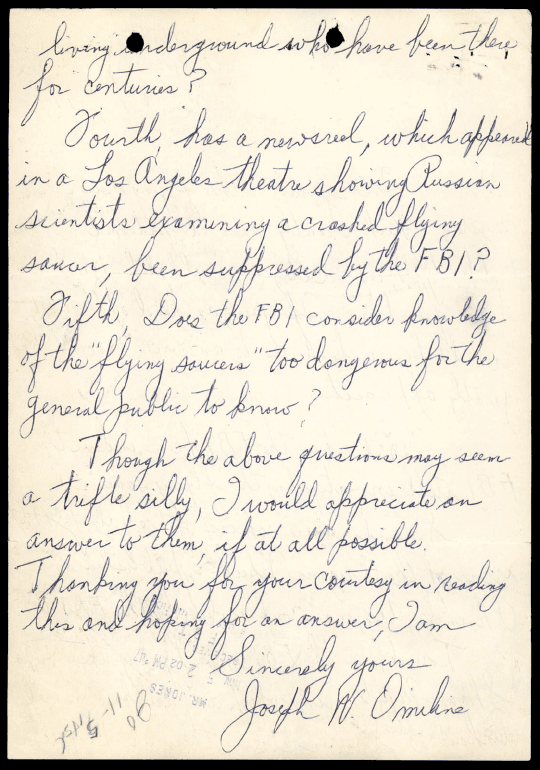 living underground who have been there
for centuries?
Fourth, has a newsreel, which appeared
in a Los Angeles theatre showing Russian
scientists examining a crashed flying
saucer, been suppressed by the FBI?
Fifth, Does the FBI consider knowledge
of the "flying saucers" too dangerous for the
general public to know?
Though the above questions may seem
a trifle silly, I would appreciate an
answer to them, if at all possible.
Thanking you for your courtesy in reading
this and hoping for an answer, I am
Sincerely yours
Joseph W.
2 02 PM '47
MR. JONES